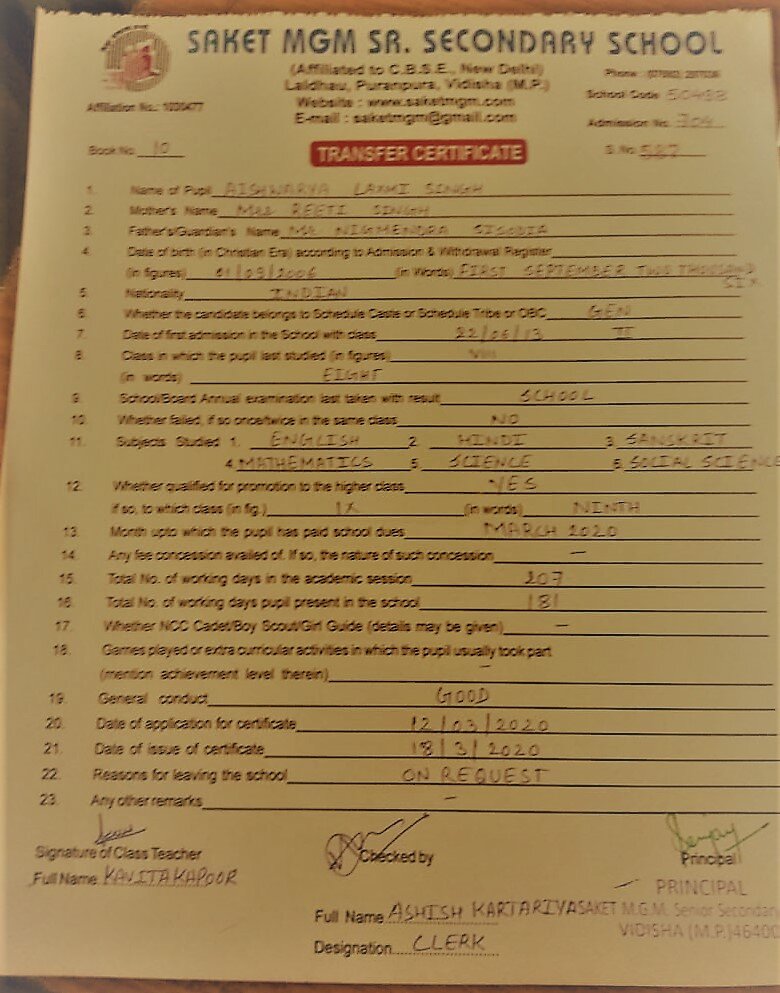 SAKET MGM SR. SECONDARY SCHOOL
(Affiliated to C.B.S.E., New Delhi)
Laldhau, Puranpura, Vidisha (M.P.)
Website : www.saketmgm.com
E-mail : saketmgm@gmail.com
Phone :
School Code 50488
Affiliation No.: 1030477
Admission No. 704
Book No. 10
TRANSFER CERTIFICATE
S. No. 587
1. Name of Pupil AISHWARYA LAXMI SINGH
2. Mother's Name Mrs REETI SINGH
3. Father's/Guardian's Name Mr. NIGMENDRA SISODIA
4. Date of birth (in Christian Era) according to Admission & Withdrawal Register
(in figures) 01/09/2006 (in Words) FIRST SEPTEMBER TWO THOUSAND SIX
5. Nationality INDIAN
6. Whether the candidate belongs to Schedule Caste or Schedule Tribe or OBC GEN
7. Date of first admission in the School with class 22/06/13 II
8. Class in which the pupil last studied (in figures) VIII
(in words) EIGHT
9. School/Board Annual examination last taken with result SCHOOL
10. Whether failed, if so once/twice in the same class NO
11. Subjects Studied 1. ENGLISH 2. HINDI 3. SANSKRIT
4. MATHEMATICS 5. SCIENCE 6. SOCIAL SCIENCE
12. Whether qualified for promotion to the higher class YES
if so, to which class (in fig.) IX (in words) NINTH
13. Month upto which the pupil has paid school dues MARCH 2020
14. Any fee concession availed of. If so, the nature of such concession —
15. Total No. of working days in the academic session 207
16. Total No. of working days pupil present in the school 181
17. Whether NCC Cadet/Boy Scout/Girl Guide (details may be given) —
18. Games played or extra curricular activities in which the pupil usually took part
(mention achievement level therein) —
19. General conduct GOOD
20. Date of application for certificate 12/03/2020
21. Date of issue of certificate 18/3/2020
22. Reasons for leaving the school ON REQUEST
23. Any other remarks —
Signature of Class Teacher
Checked by
Sanjay
Principal
Full Name KAVITA KAPOOR
PRINCIPAL
Full Name ASHISH KARTARIYA
SAKET M.G.M. Senior Secondary
VIDISHA (M.P.)46400
Designation CLERK